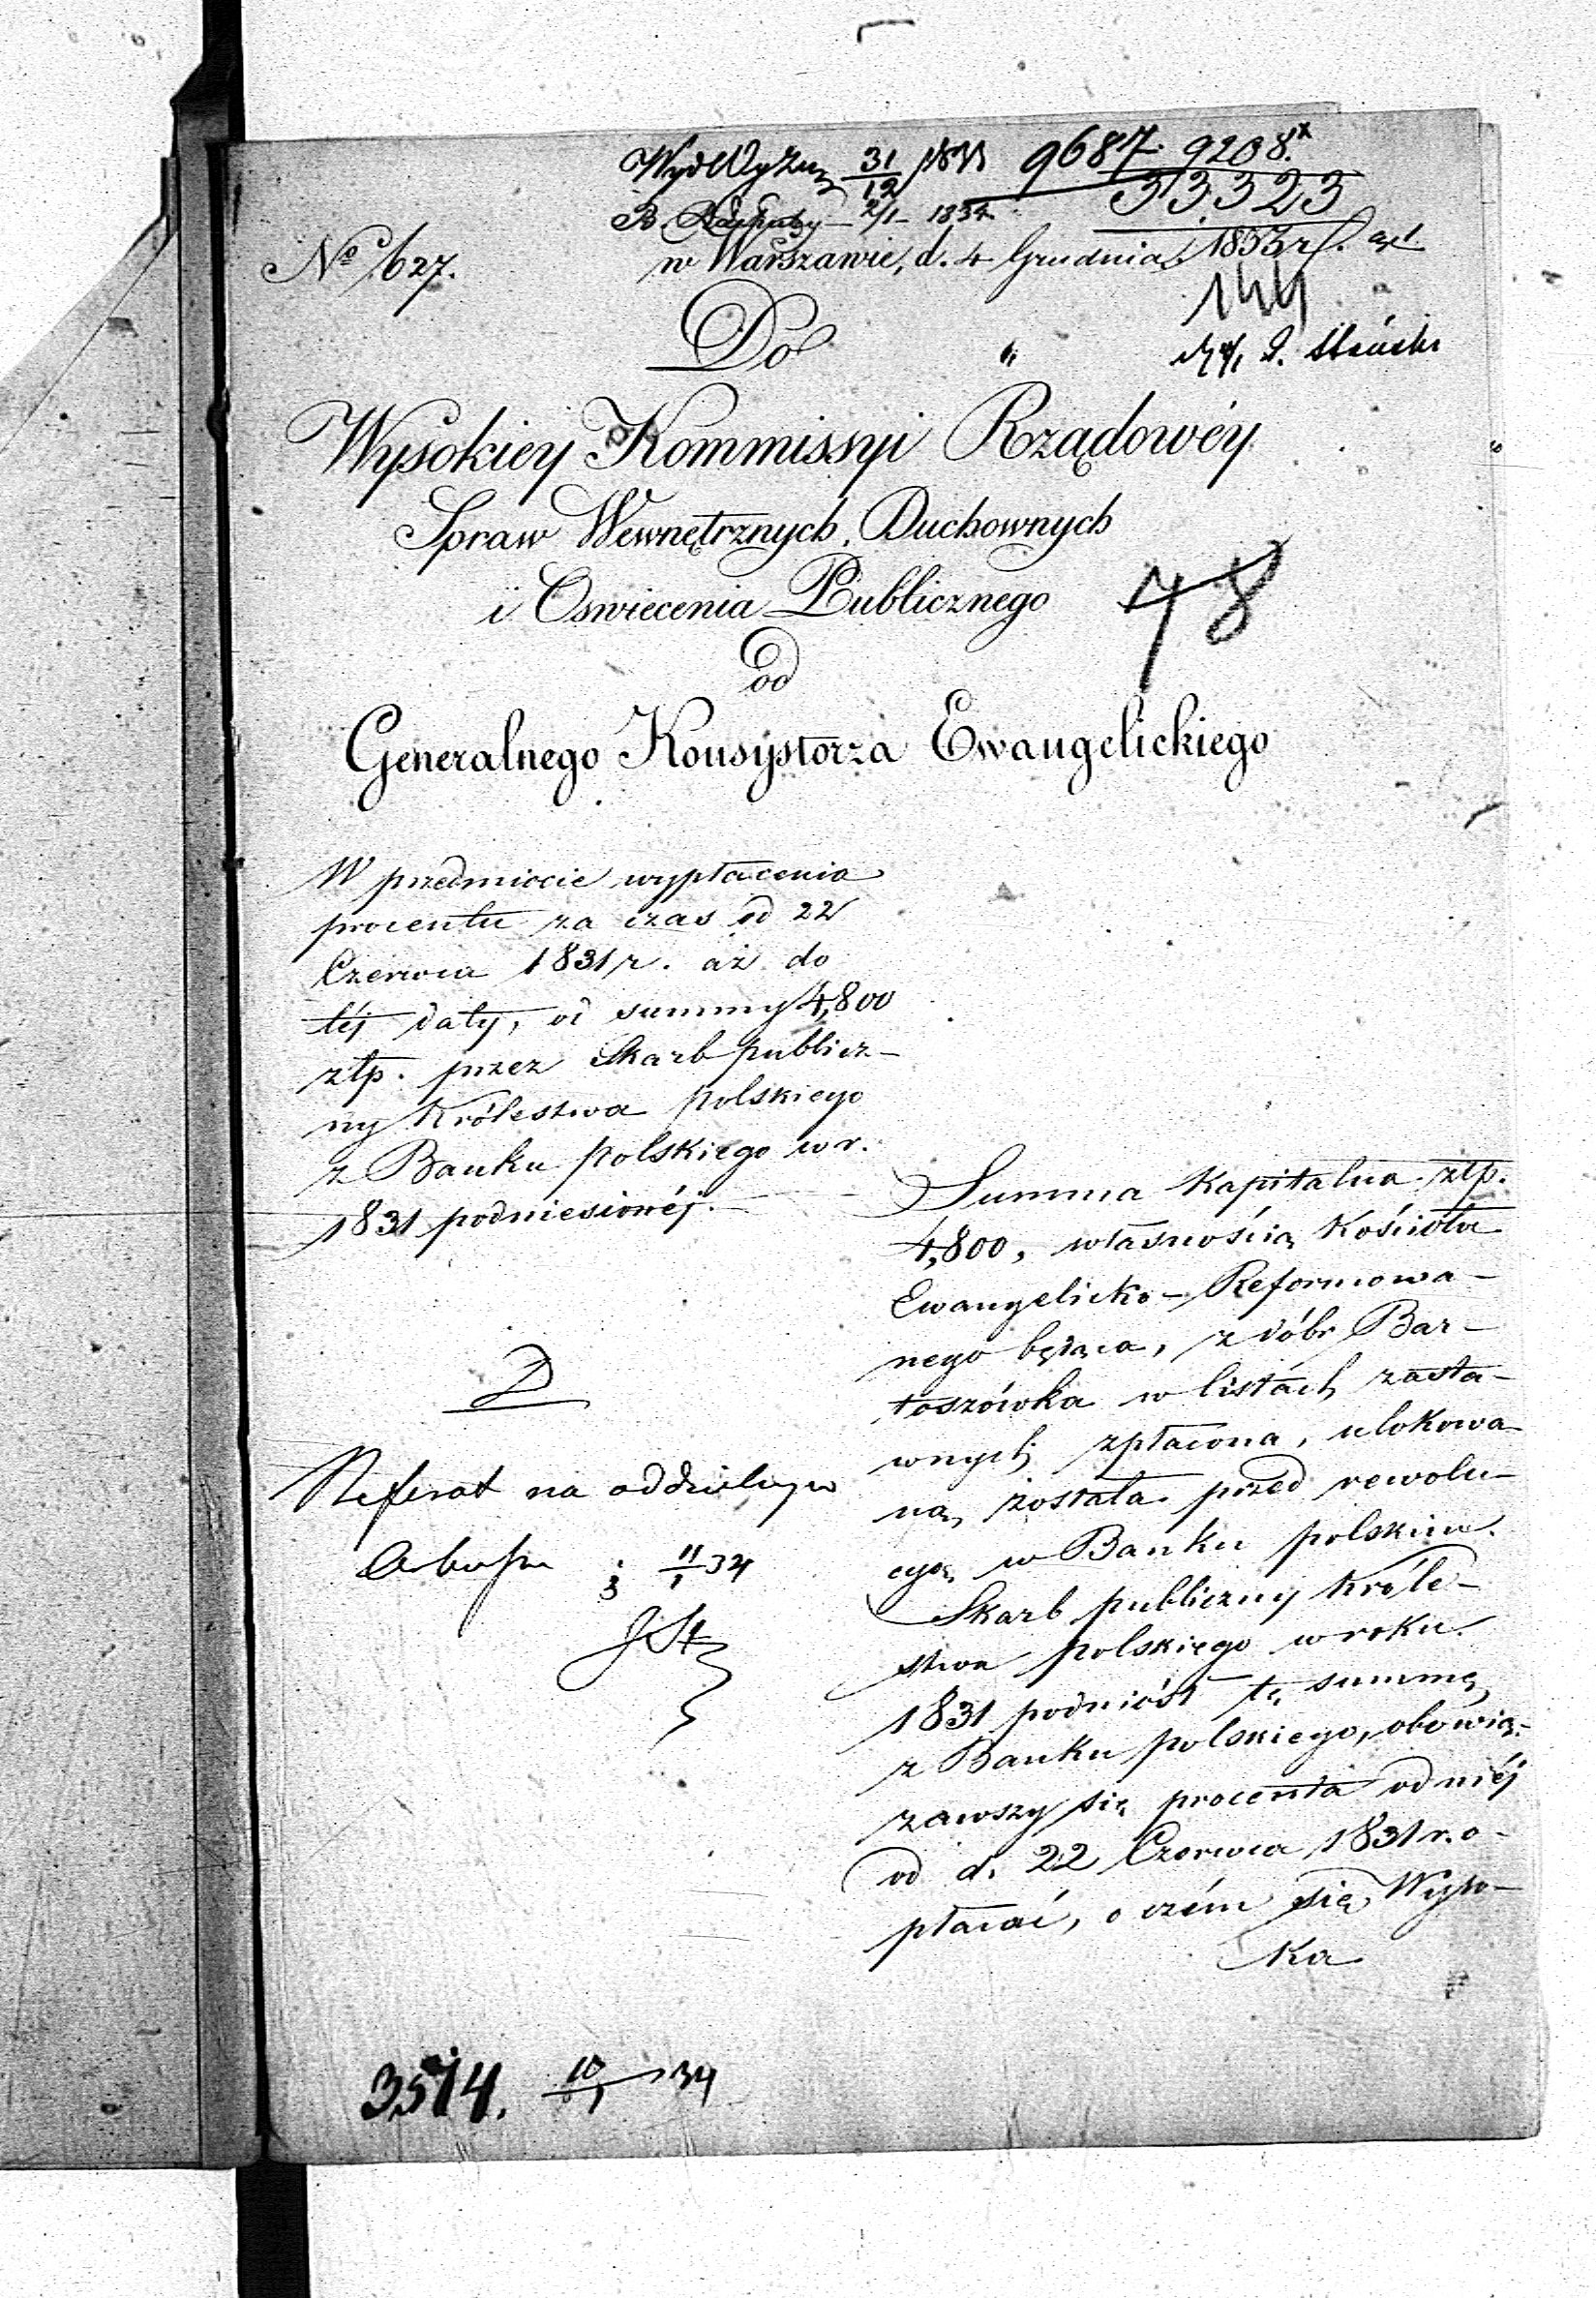 31/12 9687 9208.
33,323
2/1 1834
No 627.
w Warszawie, d. 4 Grudnia 1833 r.
144
Do
Wysokiey Kommissyi Rządowéy
Spraw Wewnętrznych, Duchownych
i Oswiecenia Publicznego
78
od
Generalnego Konsystorza Ewangelickiego
W przedmiocie wypłacenia
procentu za czas od 22
Czerwca 1831 r. aż do
téj daty, od summy 4,800
złp. przez Skarb publicz-
ny Królestwa polskiego
z Banku polskiego w r.
1831 podniesionéj.
Referat na oddzielnym
Arkuszu 11/1 34
3514. 10/1 34
Summa kapitalna złp.
4,800, własnością Kościoła
Ewangelicko-Reformowa-
nego będąca, z dóbr Bar-
toszówka w listach zasta-
wnych spłacona, ulokowa-
ną została przed rewolu-
cyą w Banku polskim.
Skarb publiczny Króle-
stwa polskiego w roku
1831 podniósł tę summę
z Banku polskiego, obowią-
zawszy się procenta od niéj
od d. 22 Czerwca 1831 r. o-
płacać, o czém się Wyso-
ka